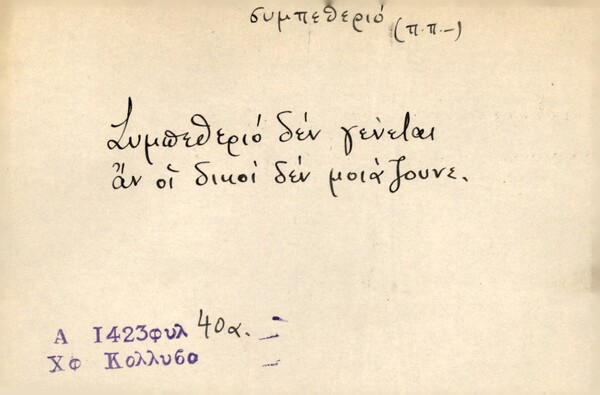 συμπεθεριό (π.π.-)
Συμπεθεριό δέν γένεται
ἄν οἱ δικοί δέν μοιάζουνε.
Α 1423φυλ 40α.
Χφ Κολλυβο